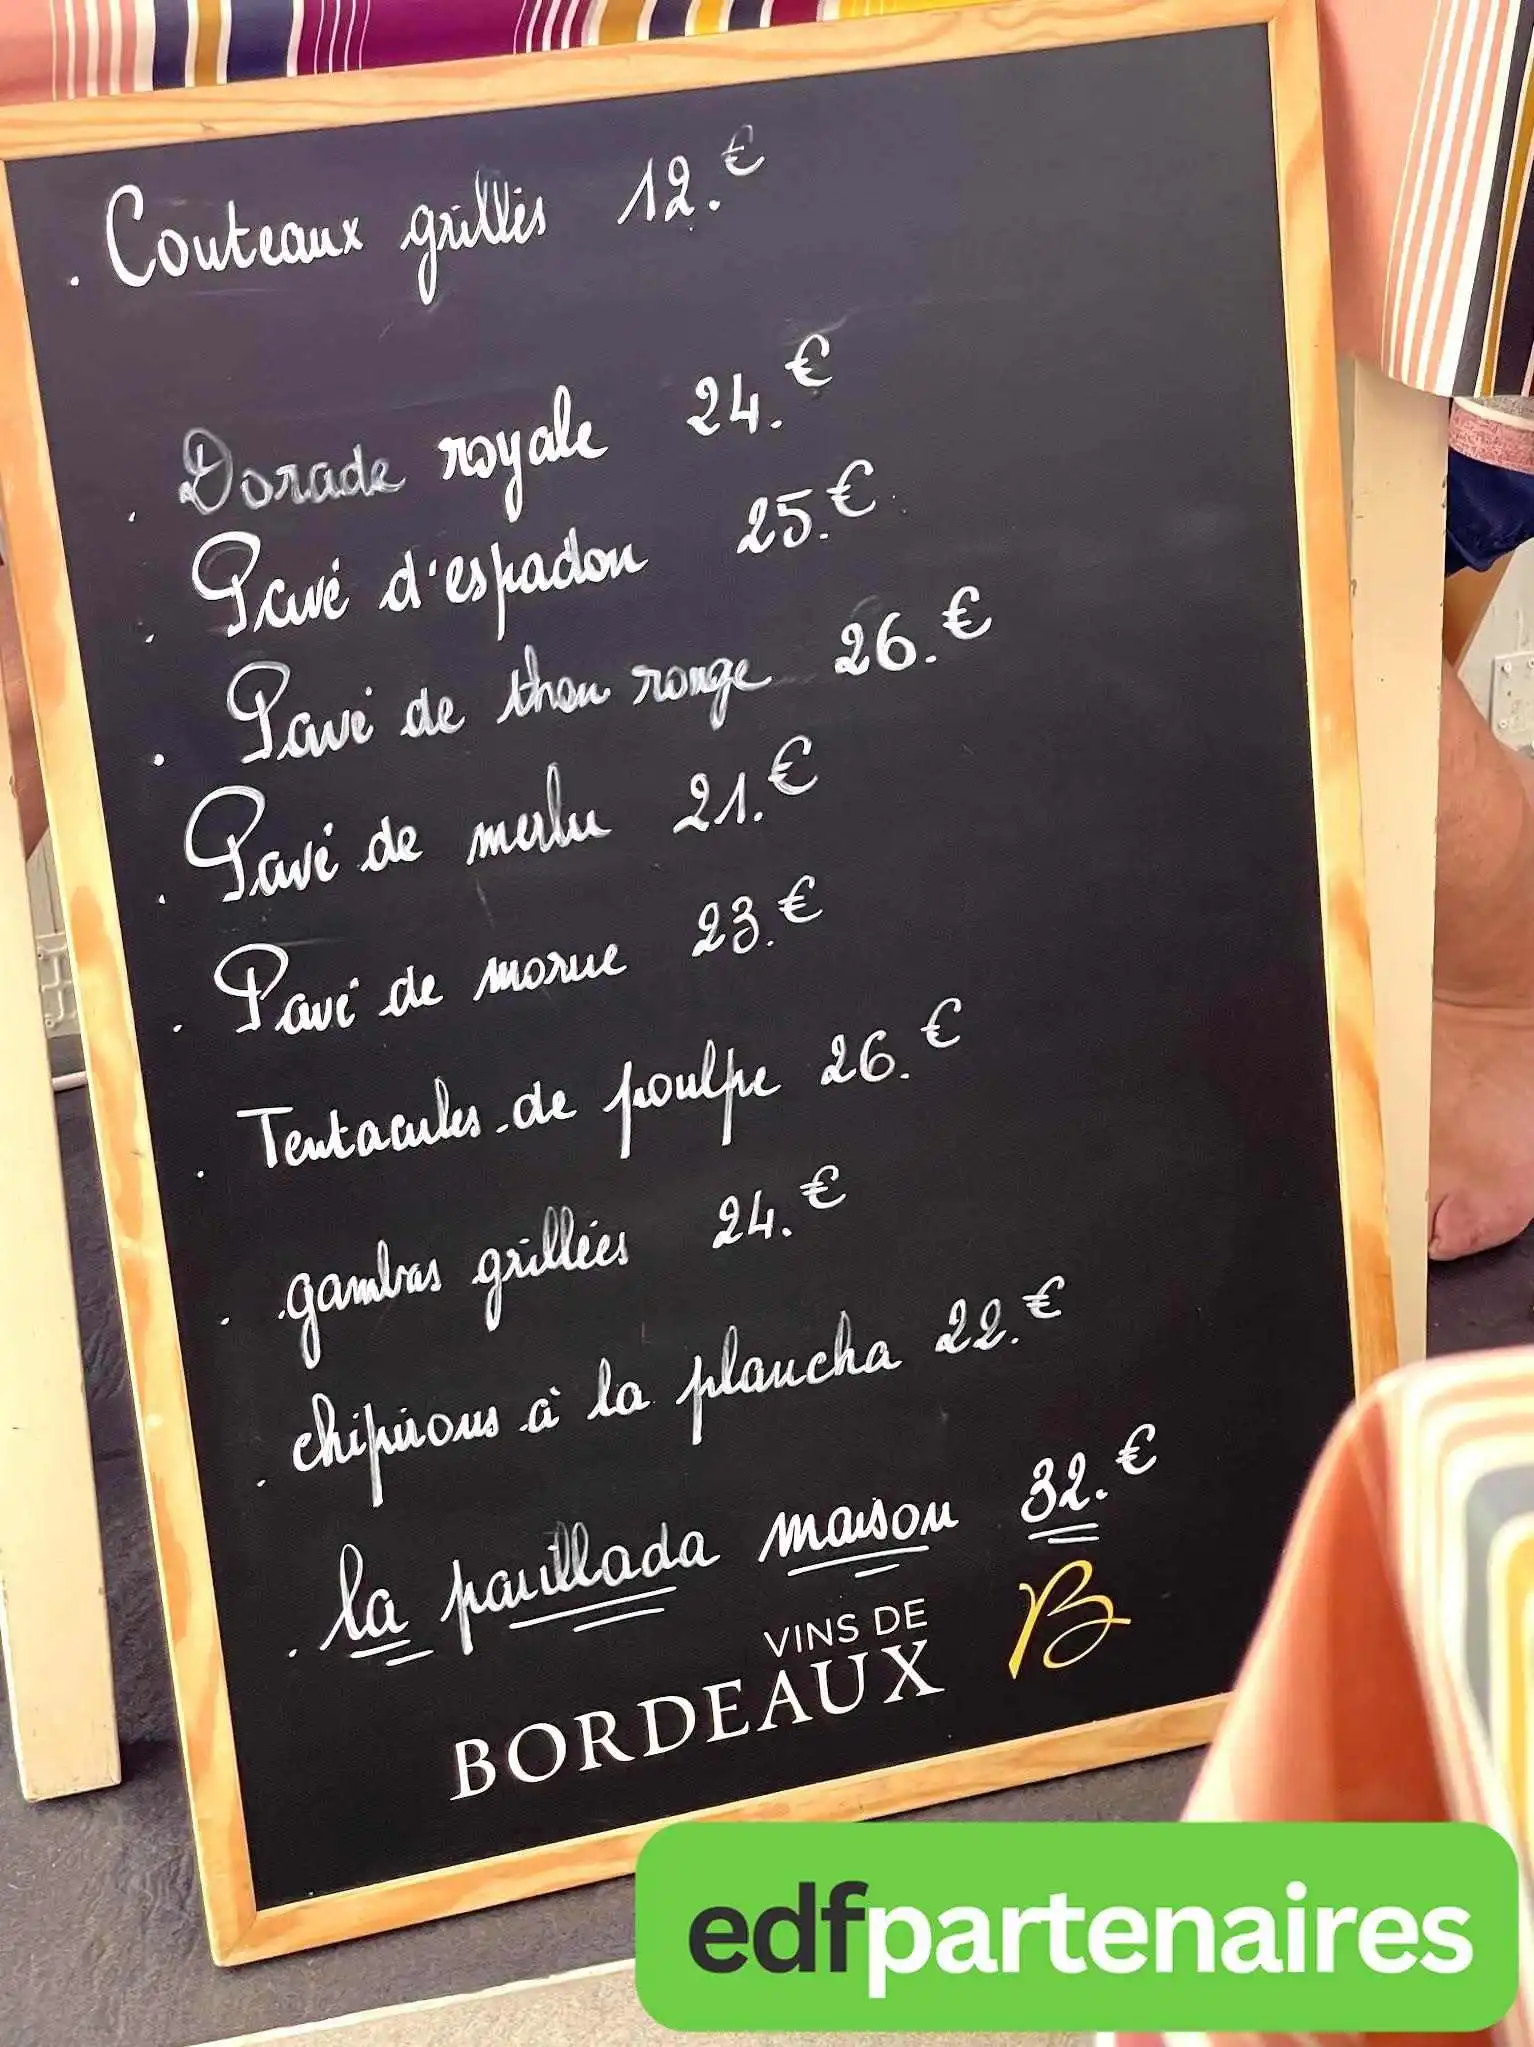 . Couteaux grillés 12.€
. Dorade royale 24.€
. Pavé d'espadon 25.€
. Pavé de thon rouge 26.€
. Pavé de merlu 21.€
. Pavé de morue 23.€
. Tentacules de poulpe 26.€
. gambas grillées 24.€
. chipirons à la plancha 22.€
. la parillada maison 32.€
VINS DE
BORDEAUX B
edfpartenaires